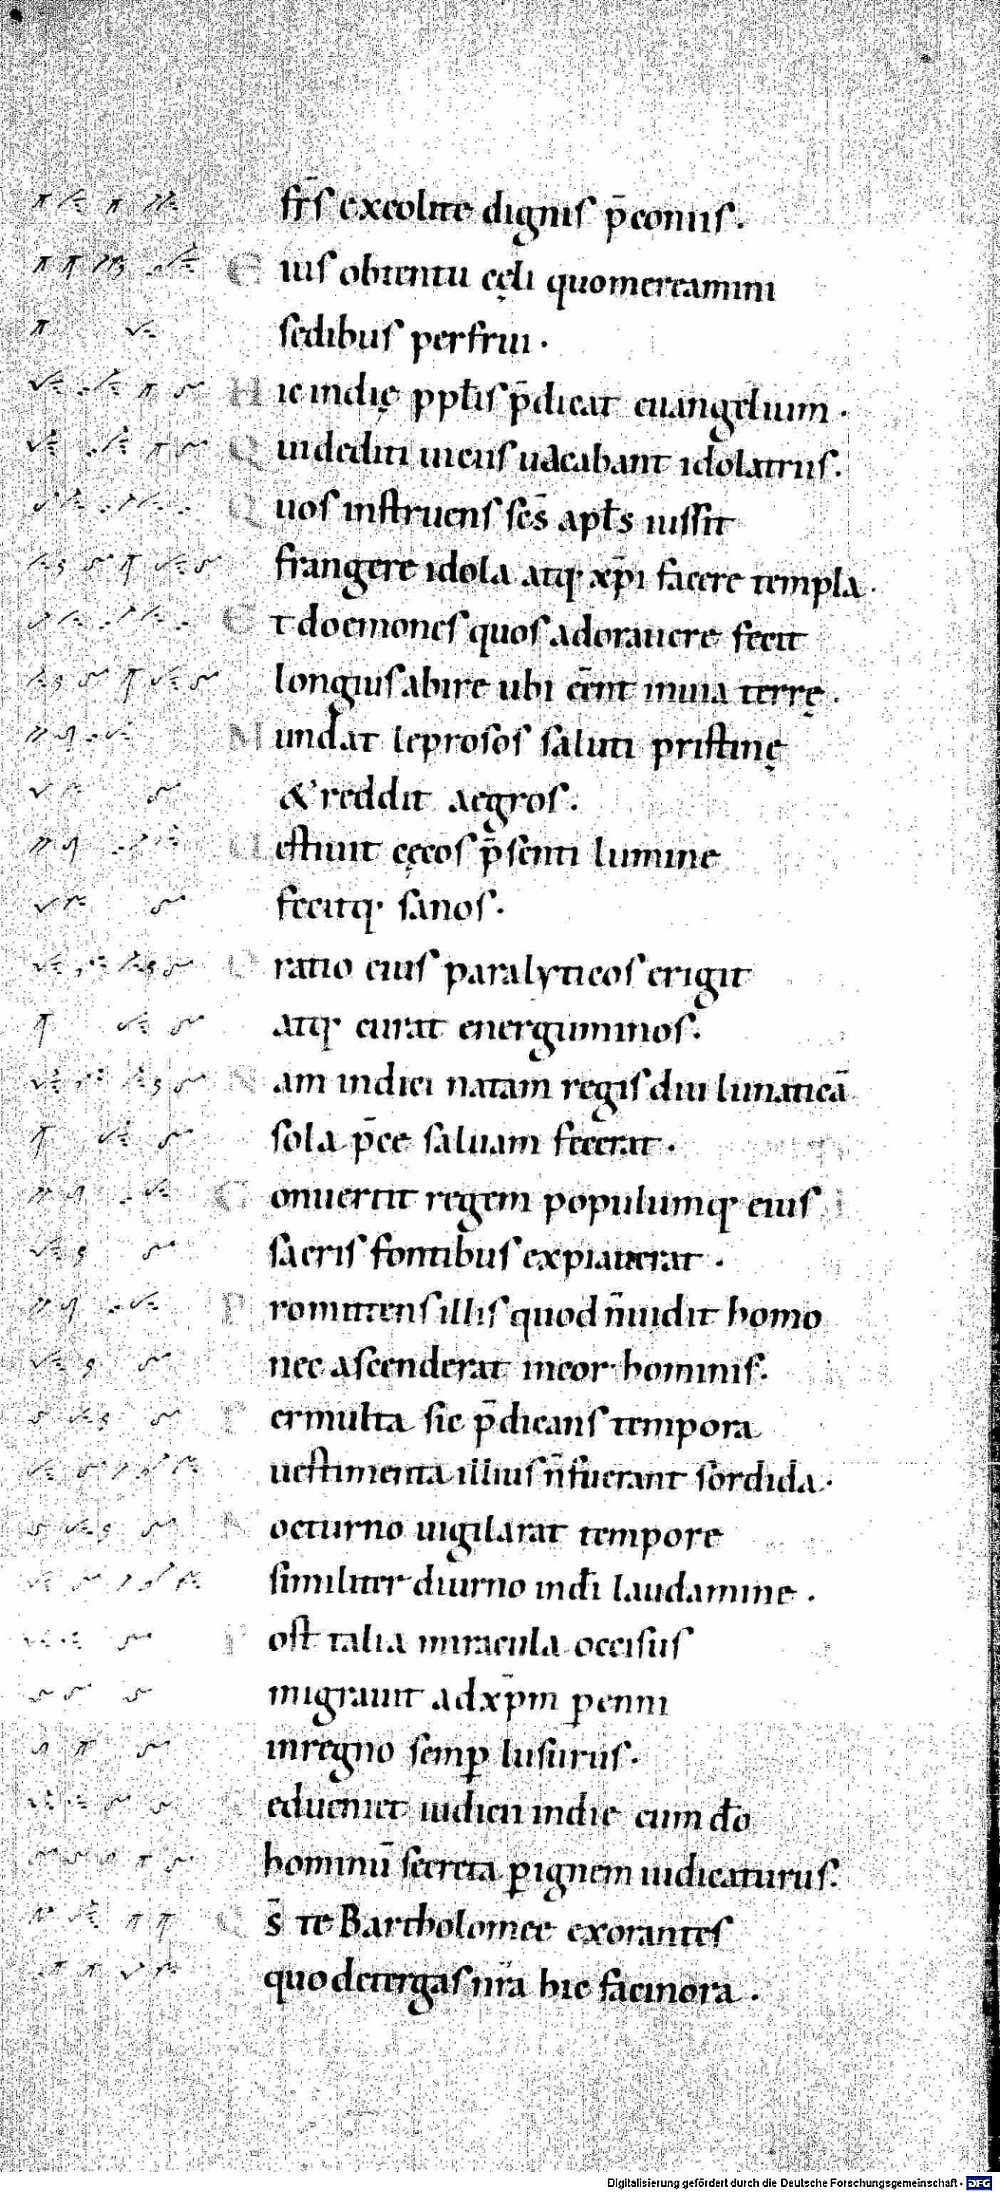 fr̄s excolite dignis p̄coniis.
Eius obtentu cęli quo mereamini
sedibus perfrui.
Hic indię ppłis p̄dicat euangelium.
Qui dediti uicus uacabant idolatriis.
Quos instruens scs̄ apłs iussit
frangere idola atq; xp̄i facere templa.
Et doemones quos adorauere fecit
longius abire ubi cēnt inuia terrę.
Mundat leprosos saluti pristinę
& reddit aegros.
Uestiuit cęcos p̄senti lumine
fecitq; sanos.
Oratio eius paralyticos erigit
atq; curat energuminos.
Nam indici natam regis diu lunaticā
sola p̄ce saluam fecerat.
Conuertit regem populumq; eius
sacris fontibus expiauerat.
Promittens illis quod n̄ uidit homo
nec ascenderat in cor hominis.
Permulta sic p̄dicans tempora
uestimenta illius n̄ fuerant sordida.
Nocturno uigilarat tempore
similiter diurno in dī laudamine.
Post talia miracula occisus
migrauit ad xp̄m p̱enni
in regno semp̱ lusurus.
edueniet iudicii in die cum do̅
hominū secreta p̱ ignem iudicaturus.
s̄ te Bartholomee exorantes
quo detergas nr̄a hic facinora.
Digitalisierung gefördert durch die Deutsche Forschungsgemeinschaft - DFG